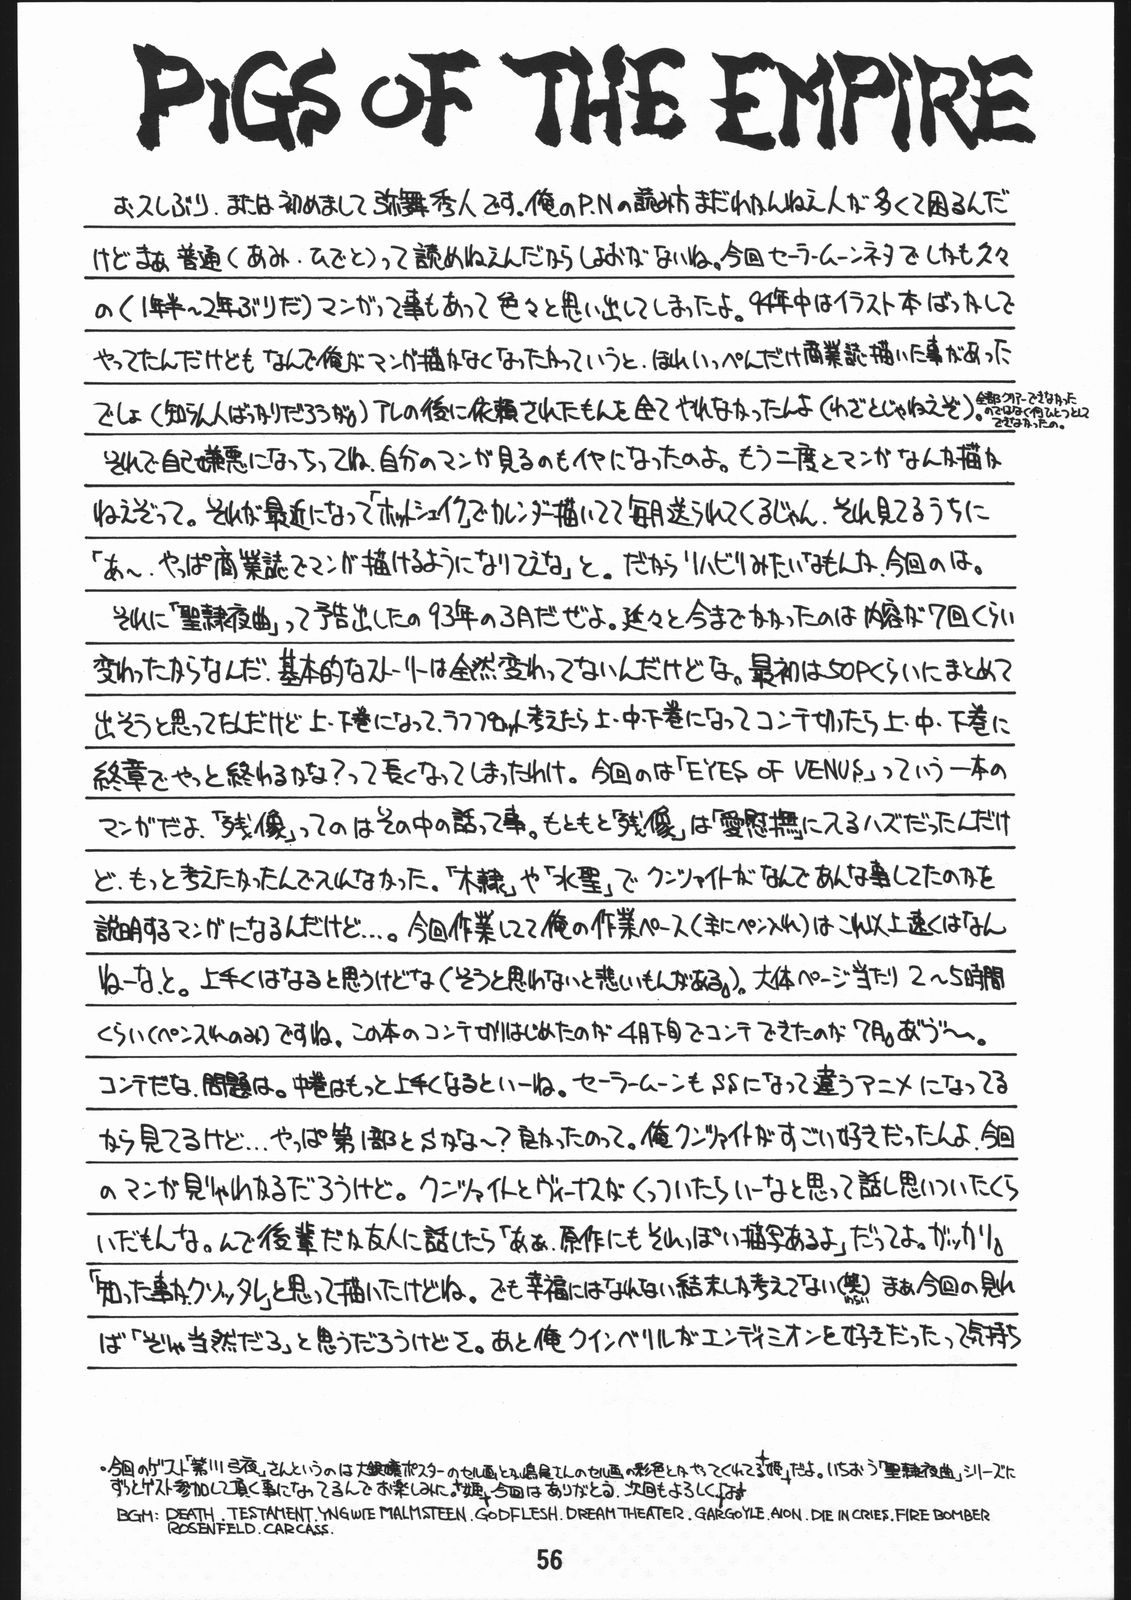 PIGS OF THE EMPIRE
お久しぶり、または初めまして弥舞秀人です。俺のP.Nの読み方まだわかんねえ人が多くて困るんだ
けどまぁ普通(あみ・ひでと)って読めねえんだからしょおがないね。今回セーラームーンネタでしかも久々
の(1年半〜2年ぶりだ)マンガって事もあって色々と思い出してしまったよ。94年中はイラスト本ばっかしで
やってたんだけどもなんで俺がマンガ描かなくなったかっていうと、ほれいっぺんだけ商業誌描いた事があった
でしょ(知らん人ばっかりだろうが。)アレの後に依頼されたもんを全てやれなかったんよ(わざとじゃねえぞ)。
全部クリアーできなかった
のではなく何ひとつとして
できなかったの。
それで自己嫌悪になっちってね、自分のマンガ見るのもイヤになったのよ。もう二度とマンガなんか描か
ねえぞって。それが最近になって「ホットシェイク」でカレンダー描いてて毎月送られてくるじゃん、それ見てるうちに
「あ〜、やっぱ商業誌でマンガ描けるようになりてえな」と。だからリハビリみたいなもんか、今回のは。
それに「聖隷夜曲」って予告出したの93年の3月だぜよ。延々と今までかかったのは内容が7回くらい
変わったからなんだ、基本的なストーリーは全然変わってないんだけどな。最初は50Pくらいにまとめて
出そうと思ってたんだけど上・下巻になって、ラフプロット考えたら上・中・下巻になってコンテ切ったら上・中・下巻に
終章でやっと終わるかな?って長くなってしまったわけ。今回のは「EYES OF VENUS」っていう一本の
マンガだよ、「残像」ってのはその中の話って事。もともと「残像」は「愛慰撫」に入るハズだったんだけ
ど、もっと考えたかったんで入れなかった。「木隷」や「水聖」でクンツァイトがなんであんな事してたのかを
説明するマンガになるんだけど…。今回作業してて俺の作業ペース(主にペン入れ)はこれ以上速くはなん
ねーな、と。上手くはなると思うけどな(そうと思わないと悲しいもんがある。)。大体ページ当たり2〜5時間
くらい(ペン入れのみ)ですね。この本のコンテ切りはじめたのが4月下旬でコンテできたのが7月。あ゛う゛〜。
コンテだな、問題は。中巻はもっと上手くなるといーね。セーラームーンもSSになって違うアニメになってる
から見てるけど…やっぱ第1部とSかな〜?良かったのって。俺クンツァイトがすごい好きだったんよ、今回
のマンガ見りゃわかるだろうけど。クンツァイトとヴィーナスがくっついたらいーなと思って話し思いついたくら
いだもんな。んで後輩だか友人に話したら「あぁ、原作にもそれっぽい描写あるよ」だってよ。ガッカリ。
「知った事か、クソッタレ」と思って描いたけどね。でも幸福にはなれない結末しか考えてない(笑) まぁ今回の見れ
わらい
ば「そりゃ当然だろ」と思うだろうけどさ。あと俺クインベリルがエンディミオンを好きだったって気持ち
・今回のゲスト「紫川弓夜」さんというのは大銀嬢ポスターのセル画とか島尾さんのセル画の彩色とかやってくれてる"姫"だよ。いちおう「聖隷夜曲」シリーズに
ずっとゲスト参加して頂く事になってるんでお楽しみに。"姫"今回はありがとう、次回もよろしくします
BGM: DEATH. TESTAMENT. YNGWIE MALMSTEEN. GODFLESH. DREAM THEATER. GARGOYLE. AION. DIE IN CRIES. FIRE BOMBER
ROSENFELD. CARCASS.
56